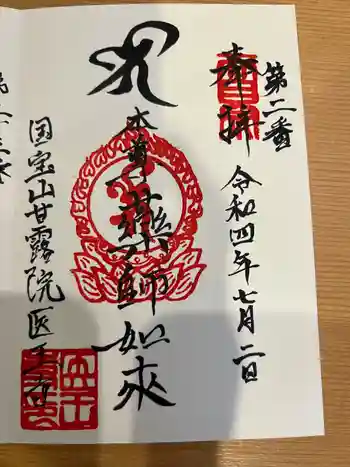 奉拝
第二番
令和四年七月二日
本尊薬師如来
国宝山甘露院医王寺